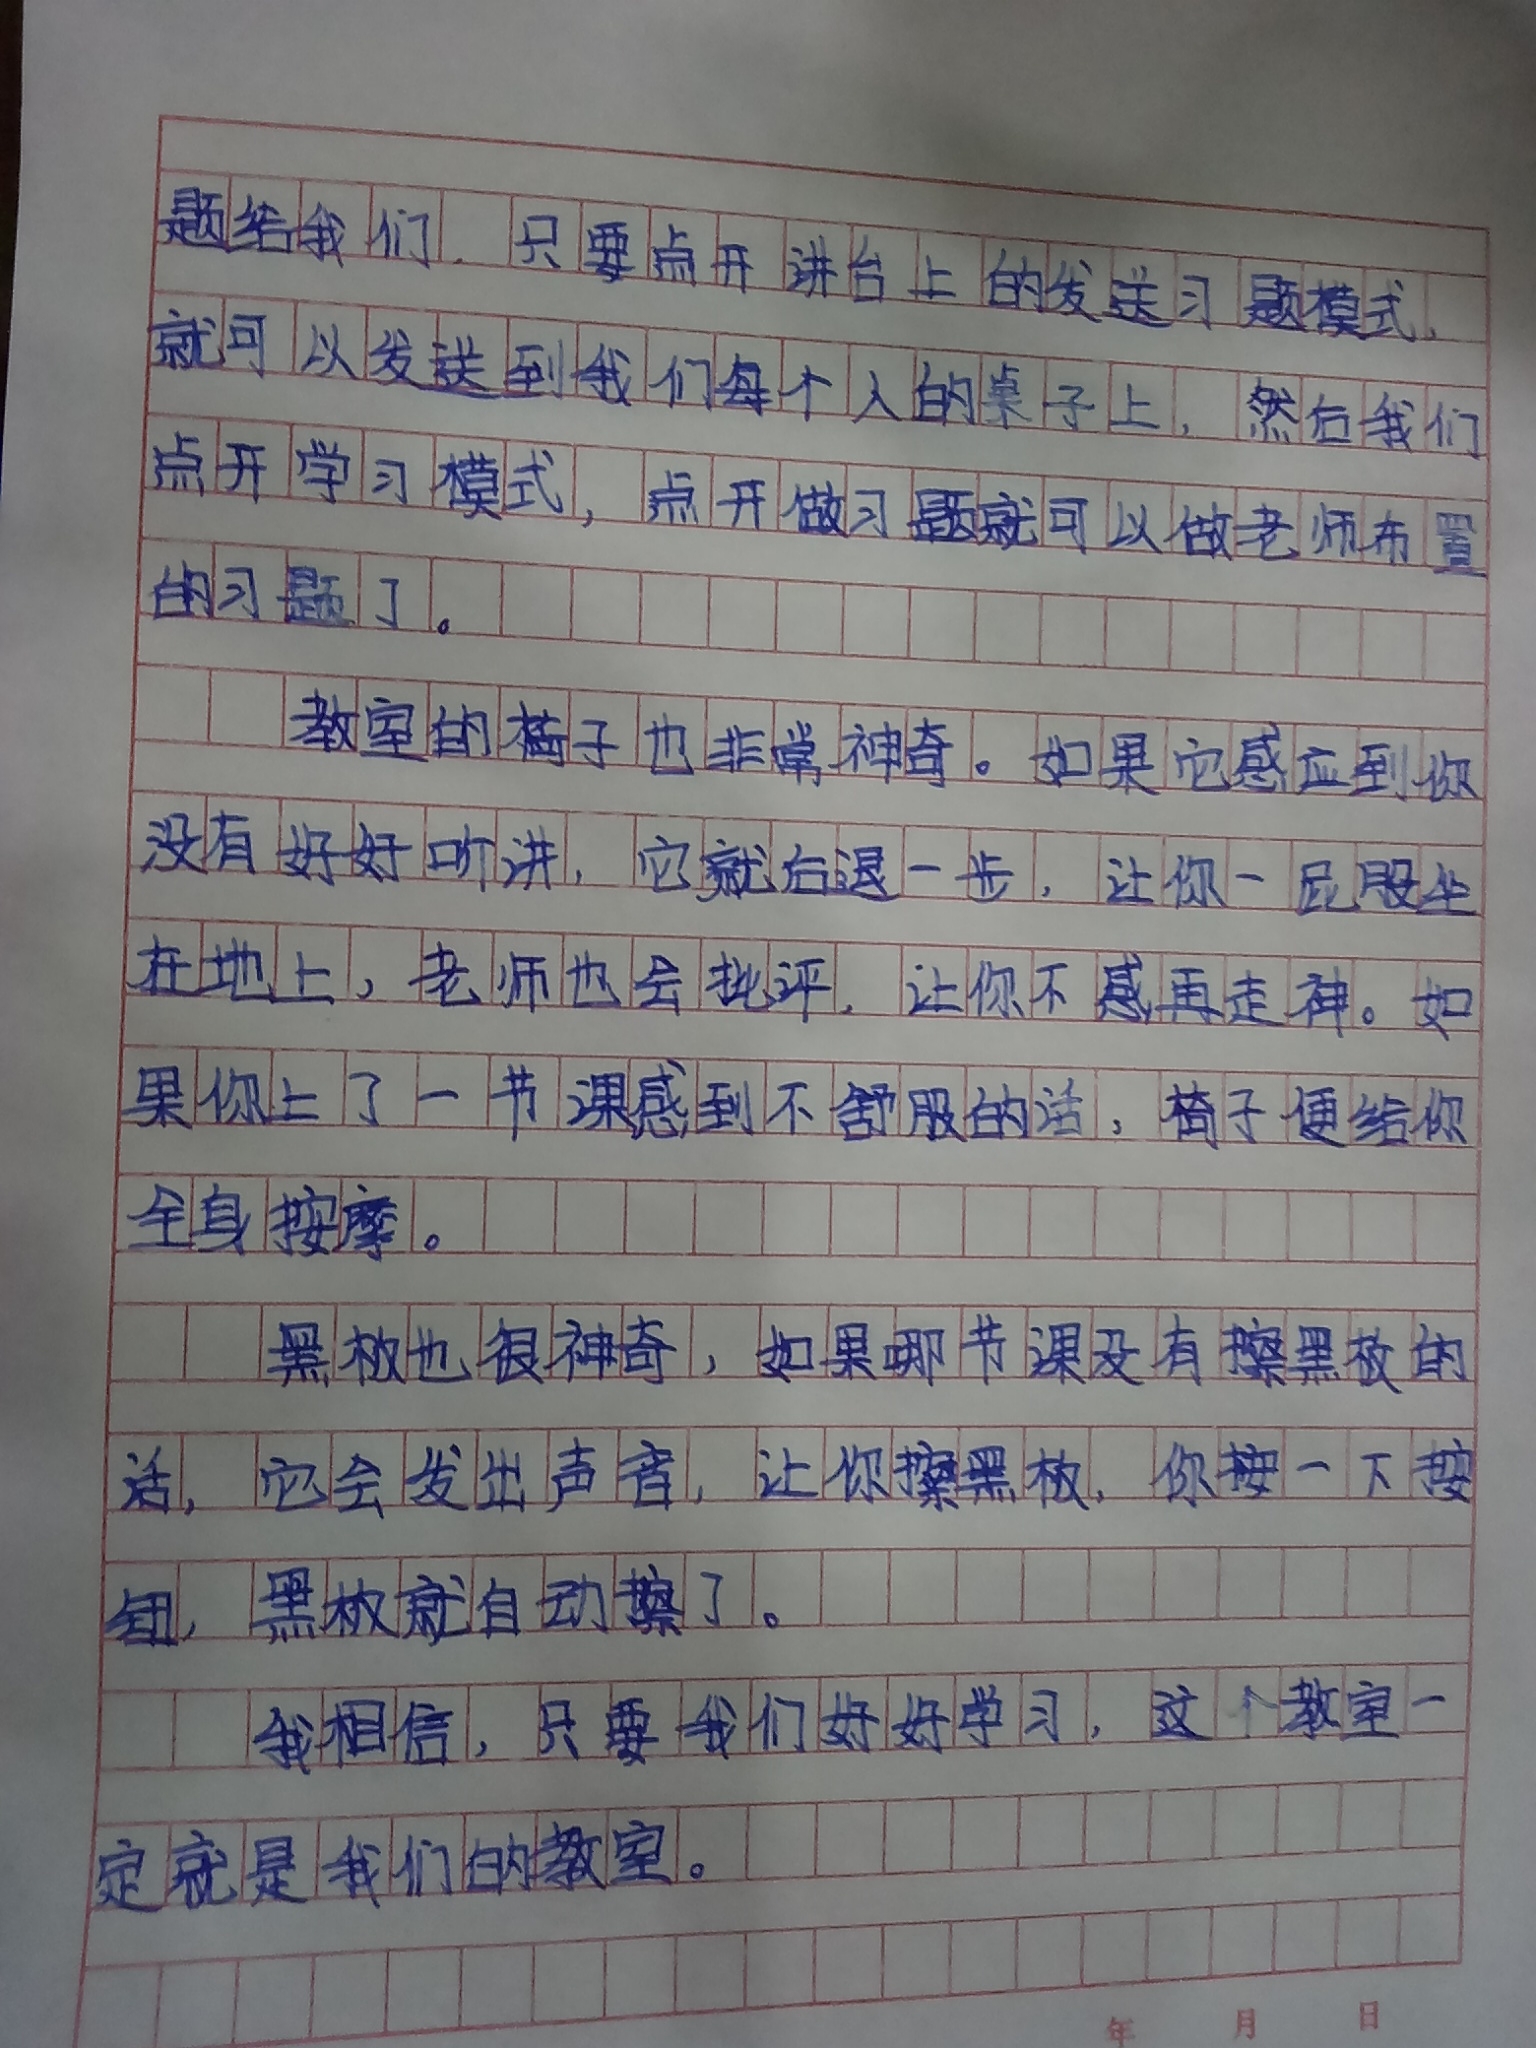 题给我们，只要点开讲台上的发送习题模式，
就可以发送到我们每个人的桌子上，然后我们
点开学习模式，点开做习题就可以做老师布置
的习题了。
教室的椅子也非常神奇。如果它感应到你
没有好好听讲，它就后退一步，让你一屁股坐
在地上，老师也会批评，让你不感再走神。如
果你上了一节课感到不舒服的话，椅子便给你
全身按摩。
黑板也很神奇，如果哪节课没有擦黑板的
话，它会发出声音，让你擦黑板，你按一下按
钮，黑板就自动擦了。
我相信，只要我们好好学习，这个教室一
定就是我们的教室。
年 月 日